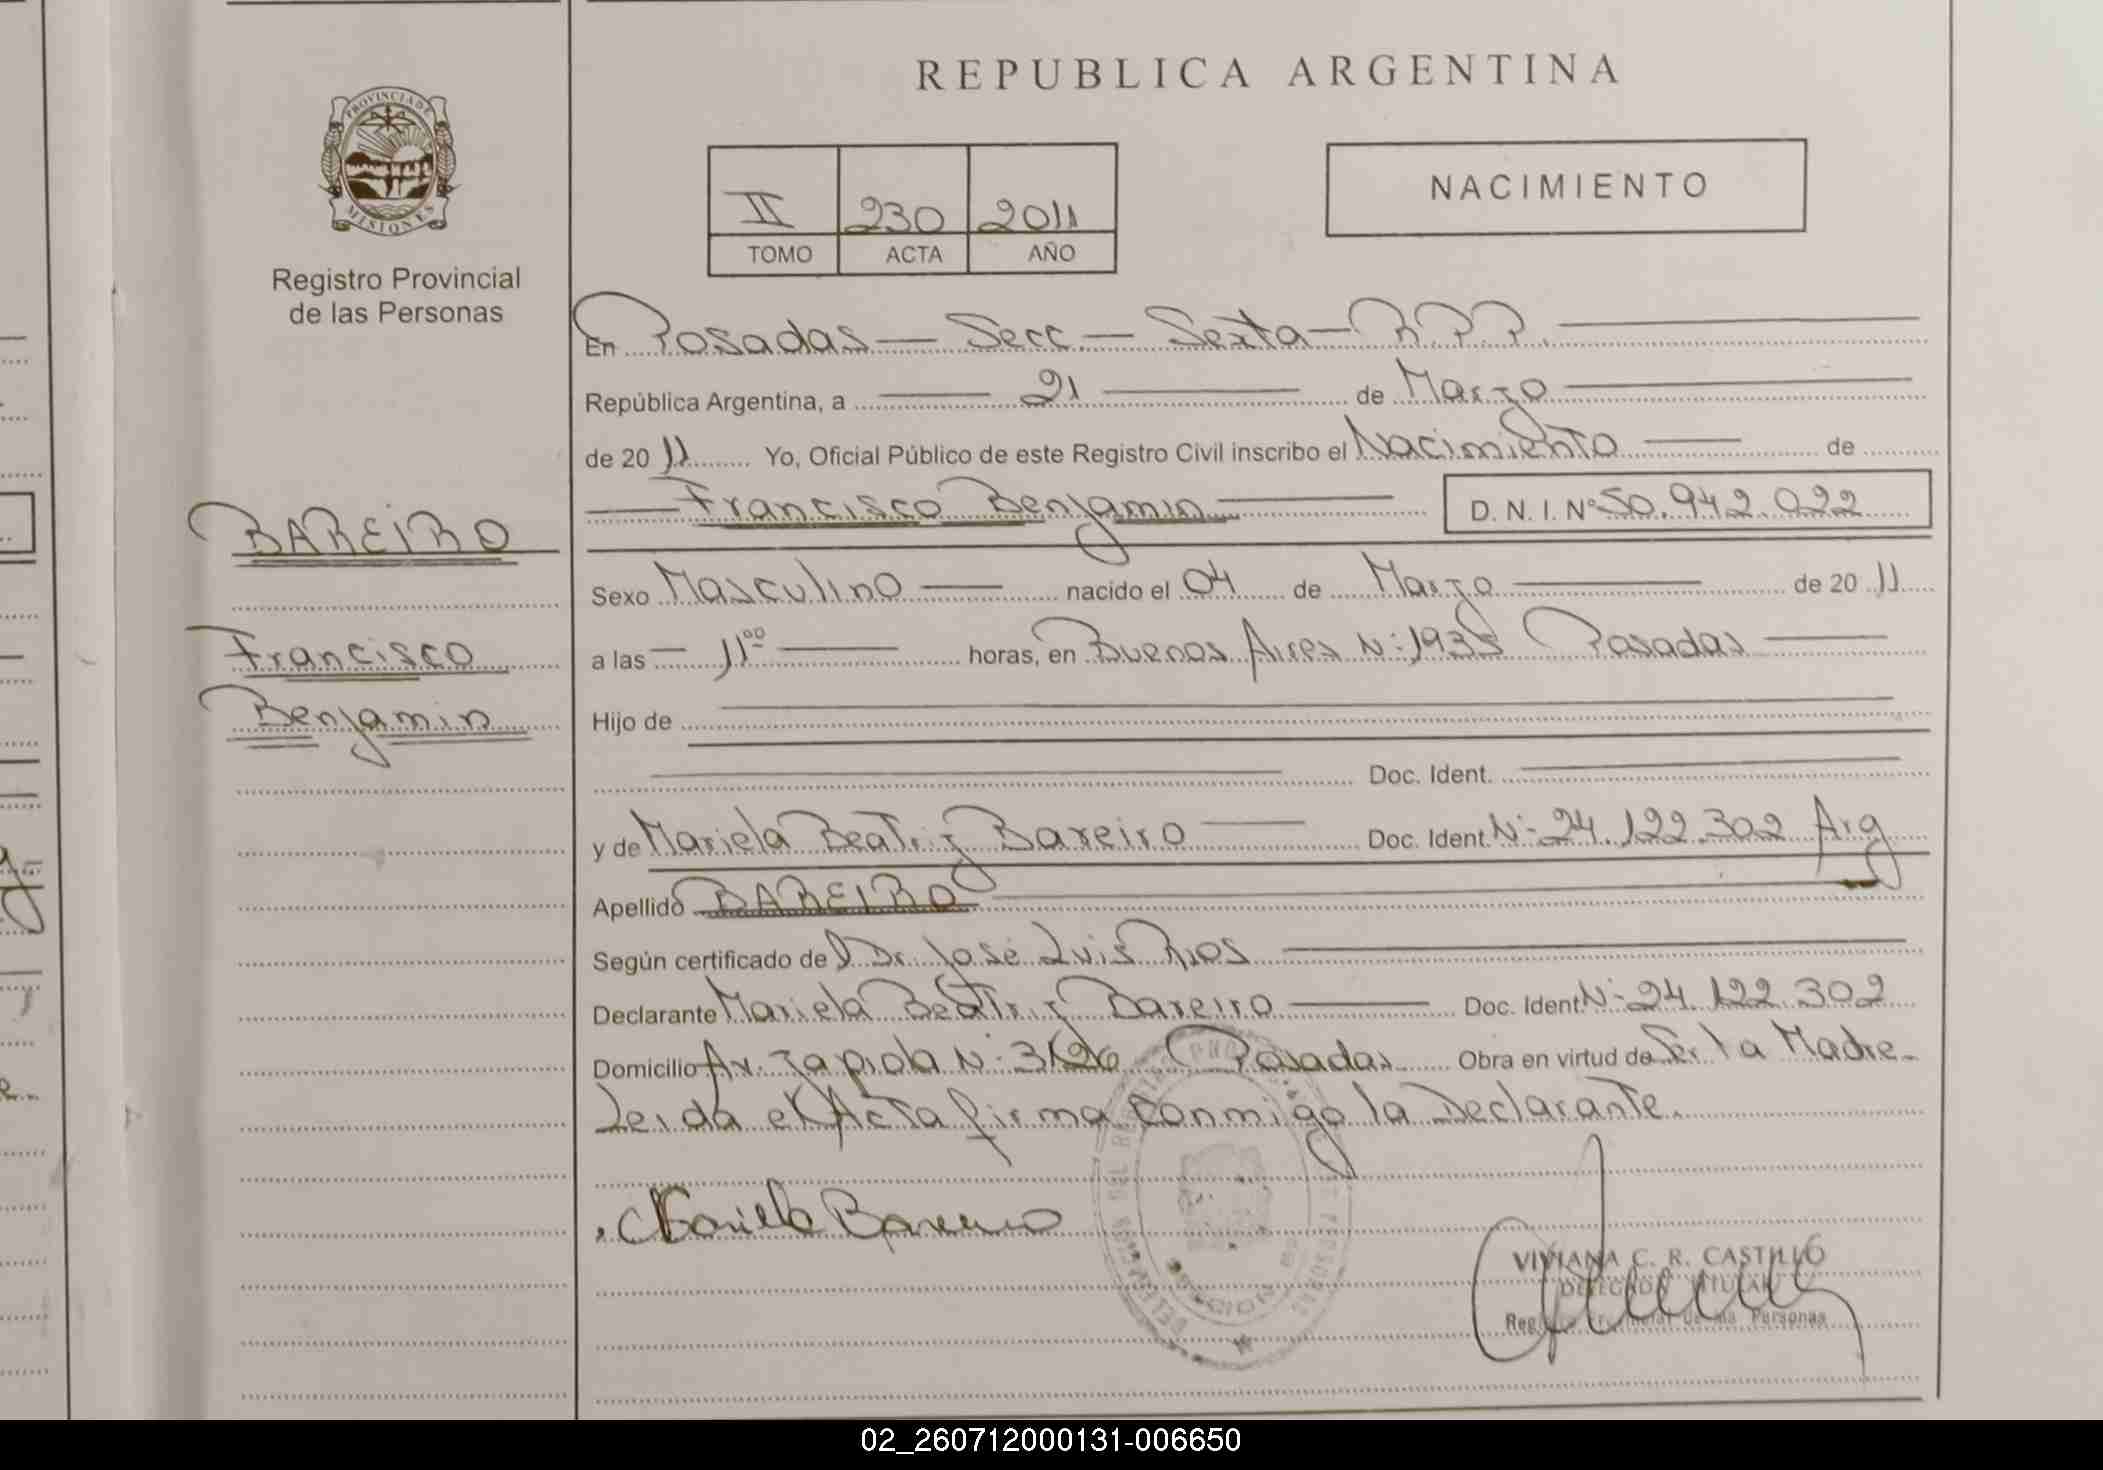 REPUBLICA ARGENTINA
PROVINCIA DE
MISIONES
Registro Provincial
de las Personas
II 230 2011
TOMO ACTA AÑO
NACIMIENTO
En Posadas — Secc — Sexta — R.P.P.
República Argentina, a 21 de Marzo
de 2011 Yo, Oficial Público de este Registro Civil inscribo el Nacimiento de
Francisco Benjamin D. N. I. Nº 50.942.022
BAREIRO
Francisco
Benjamin
Sexo Masculino nacido el 04 de Marzo de 2011
a las 11⁰⁰ horas, en Buenos Aires Nº 1935 Posadas
Hijo de
Doc. Ident.
y de Mariela Beatriz Bareiro Doc. Ident. Nº 24.122.302 Arg
Apellido BAREIRO
Según certificado del Dr. José Luis Rios
Declarante Mariela Beatriz Bareiro Doc. Ident Nº 24.122.302
Domicilio Av. Zapiola Nº 3126 Posadas Obra en virtud de Ser la Madre-
Leida el Acta firma conmigo la Declarante.
Mariela Bareiro
VIVIANA C. R. CASTILLO
DELEGADA TITULAR
Registro Provincial de las Personas
02_260712000131-006650